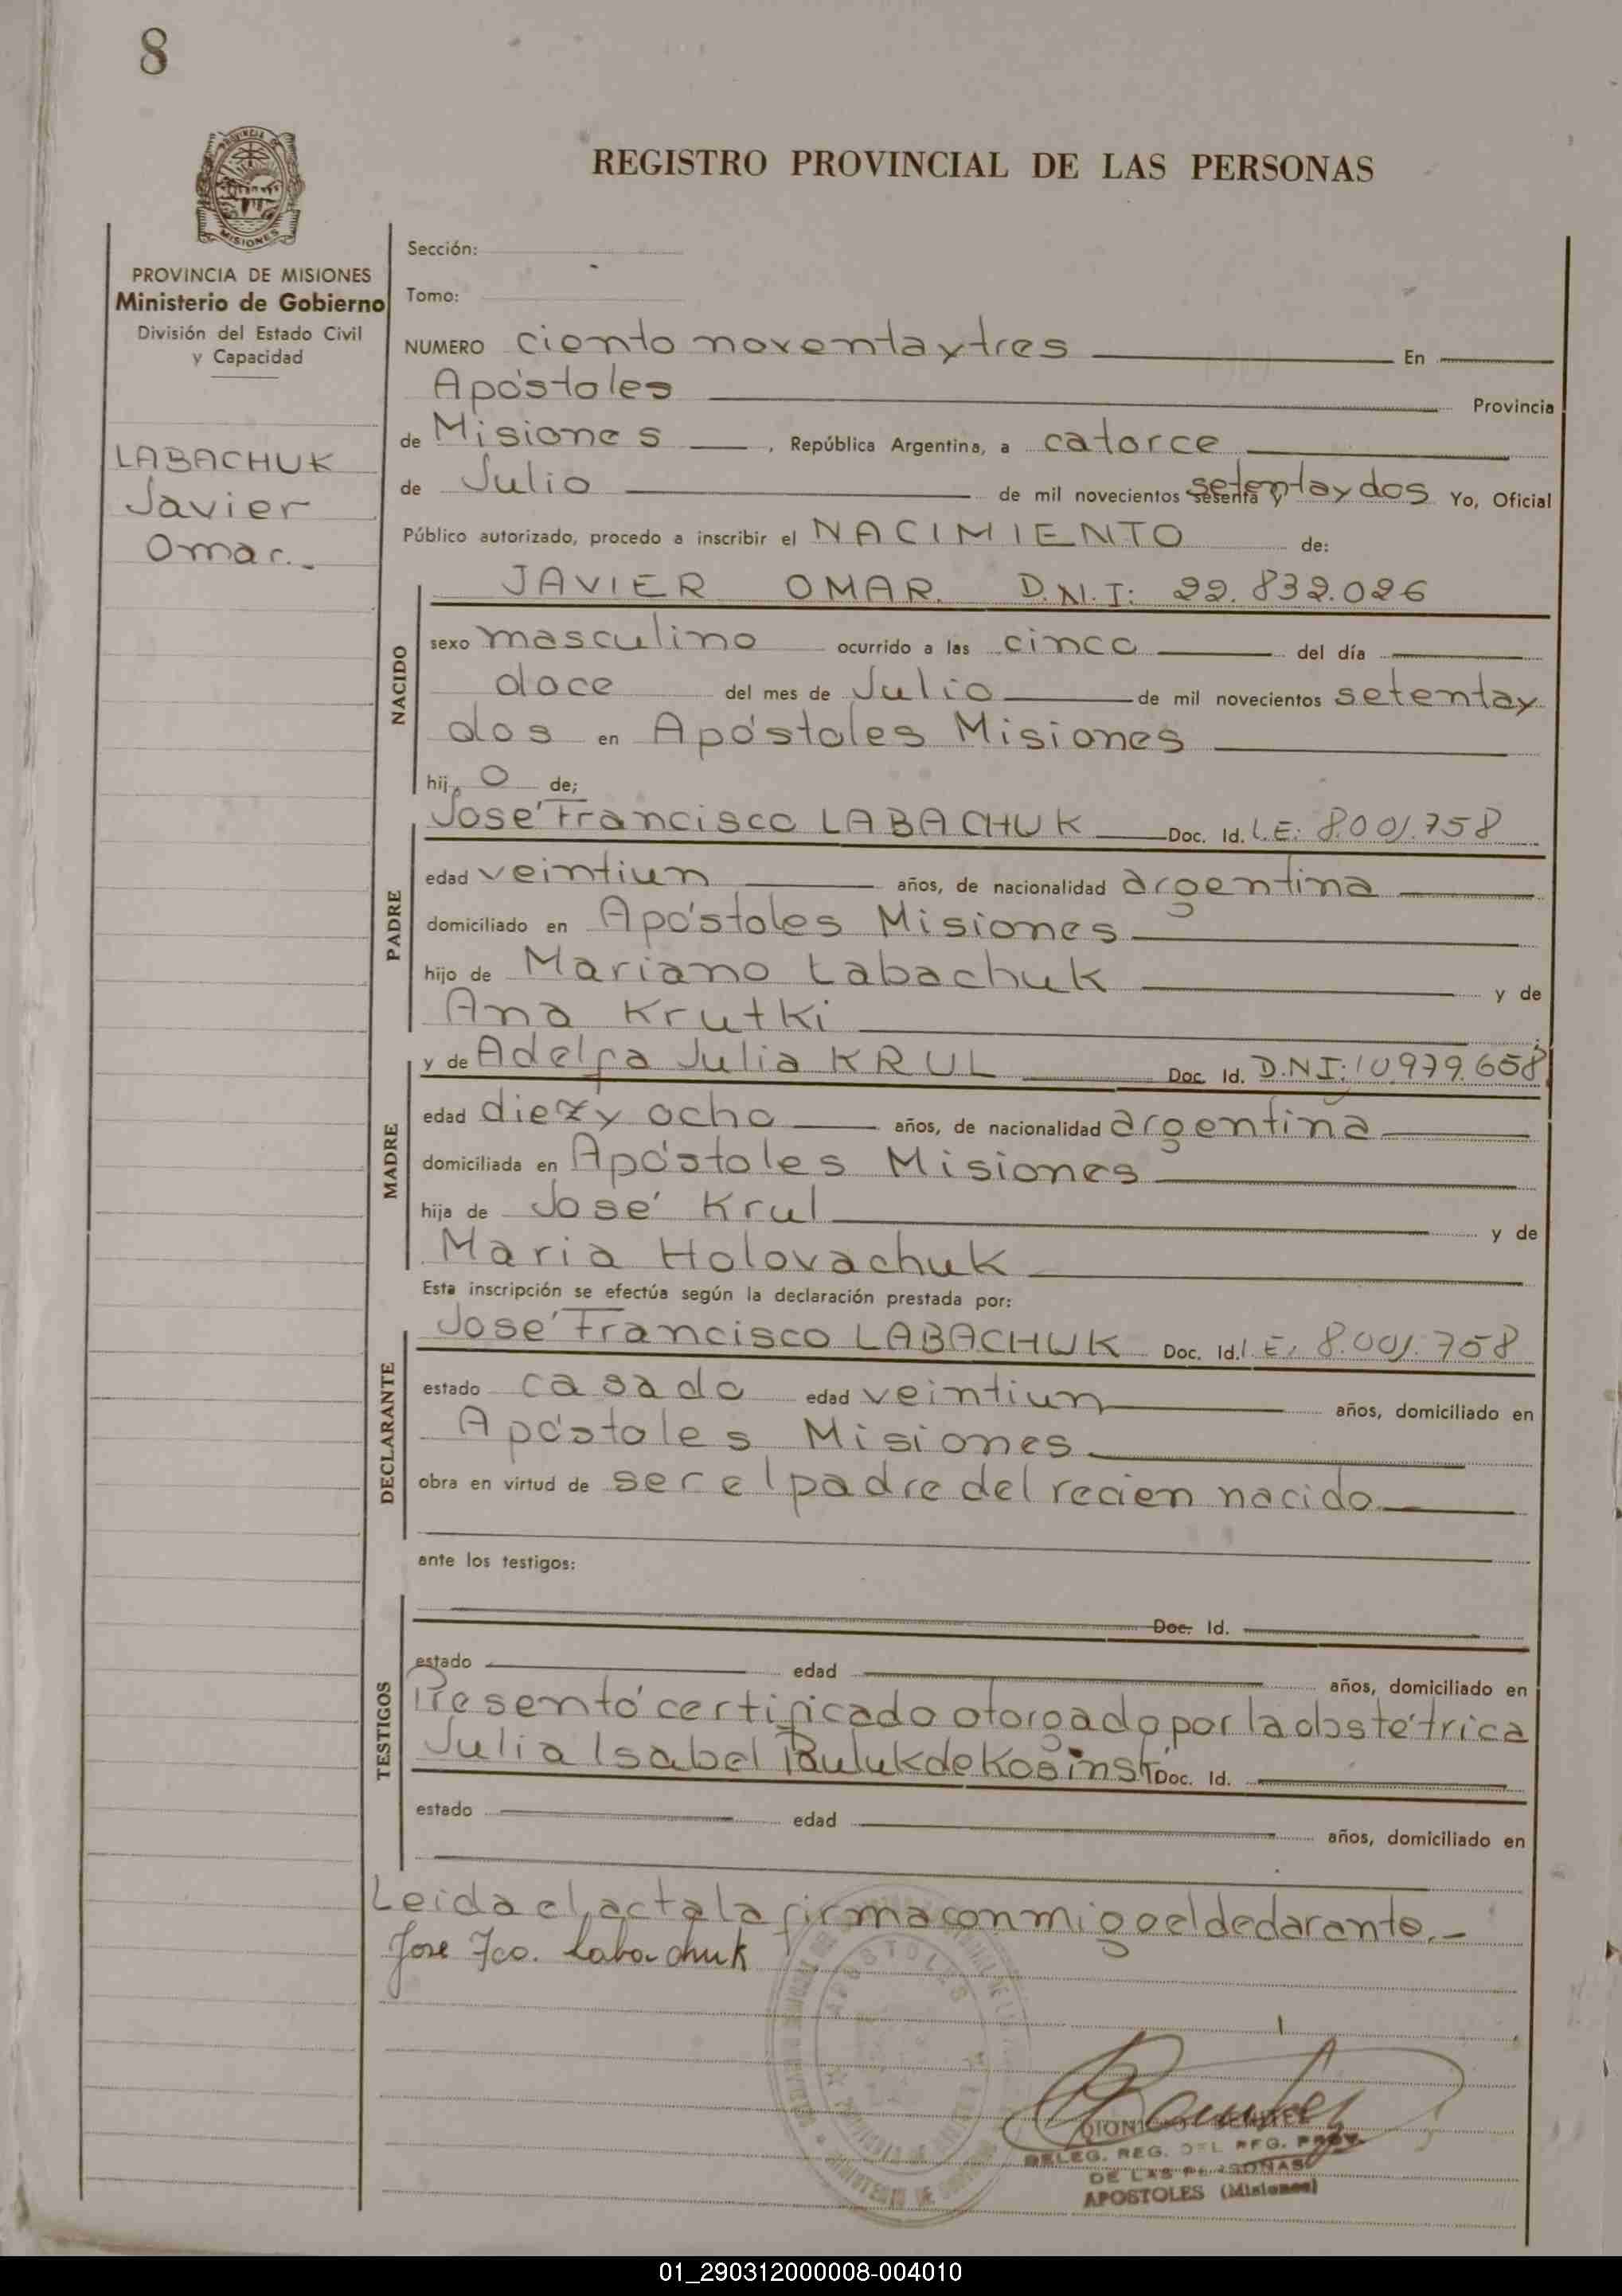 8
REGISTRO PROVINCIAL DE LAS PERSONAS
PROVINCIA DE MISIONES
Ministerio de Gobierno
División del Estado Civil
y Capacidad
LABACHUK
Javier
Omar.-
Sección:
Tomo:
NUMERO ciento noventaytres En
Apóstoles Provincia
de Misiones , República Argentina, a catorce
de Julio de mil novecientos sesenta y setentaydos Yo, Oficial
Público autorizado, procedo a inscribir el NACIMIENTO de:
JAVIER OMAR. D.N.I: 22.832.026
NACIDO
sexo masculino ocurrido a las cinco del día
doce del mes de Julio de mil novecientos setentay
dos en Apóstoles Misiones
hij o de;
PADRE
José Francisco LABACHUK Doc. Id. L.E: 8.001.758
edad veintiun años, de nacionalidad argentina
domiciliado en Apóstoles Misiones
hijo de Mariano Labachuk y de
Ana Krutki
MADRE
y de Adelfa Julia KRUL Doc. Id. D.N.I: 10.979.658
edad diezy ocho años, de nacionalidad argentina
domiciliada en Apóstoles Misiones
hija de José Krul y de
Maria Holovachuk
Esta inscripción se efectúa según la declaración prestada por:
DECLARANTE
José Francisco LABACHUK Doc. Id. L.E. 8.001.758
estado casado edad veintiun años, domiciliado en
Apóstoles Misiones
obra en virtud de ser el padre del recien nacido
ante los testigos:
TESTIGOS
Doc. Id.
estado edad años, domiciliado en
Presentó certificado otorgado por la obstétrica
Julia Isabel Paulukde Kosinski Doc. Id.
estado edad años, domiciliado en
Leida el acta la firma conmigo el declarante.-
Jose Fco. Labachuk
APOSTOLES
DELEG. REG. DEL REG. PROV.
DE LAS PERSONAS
APOSTOLES (Misiones)
01_290312000008-004010